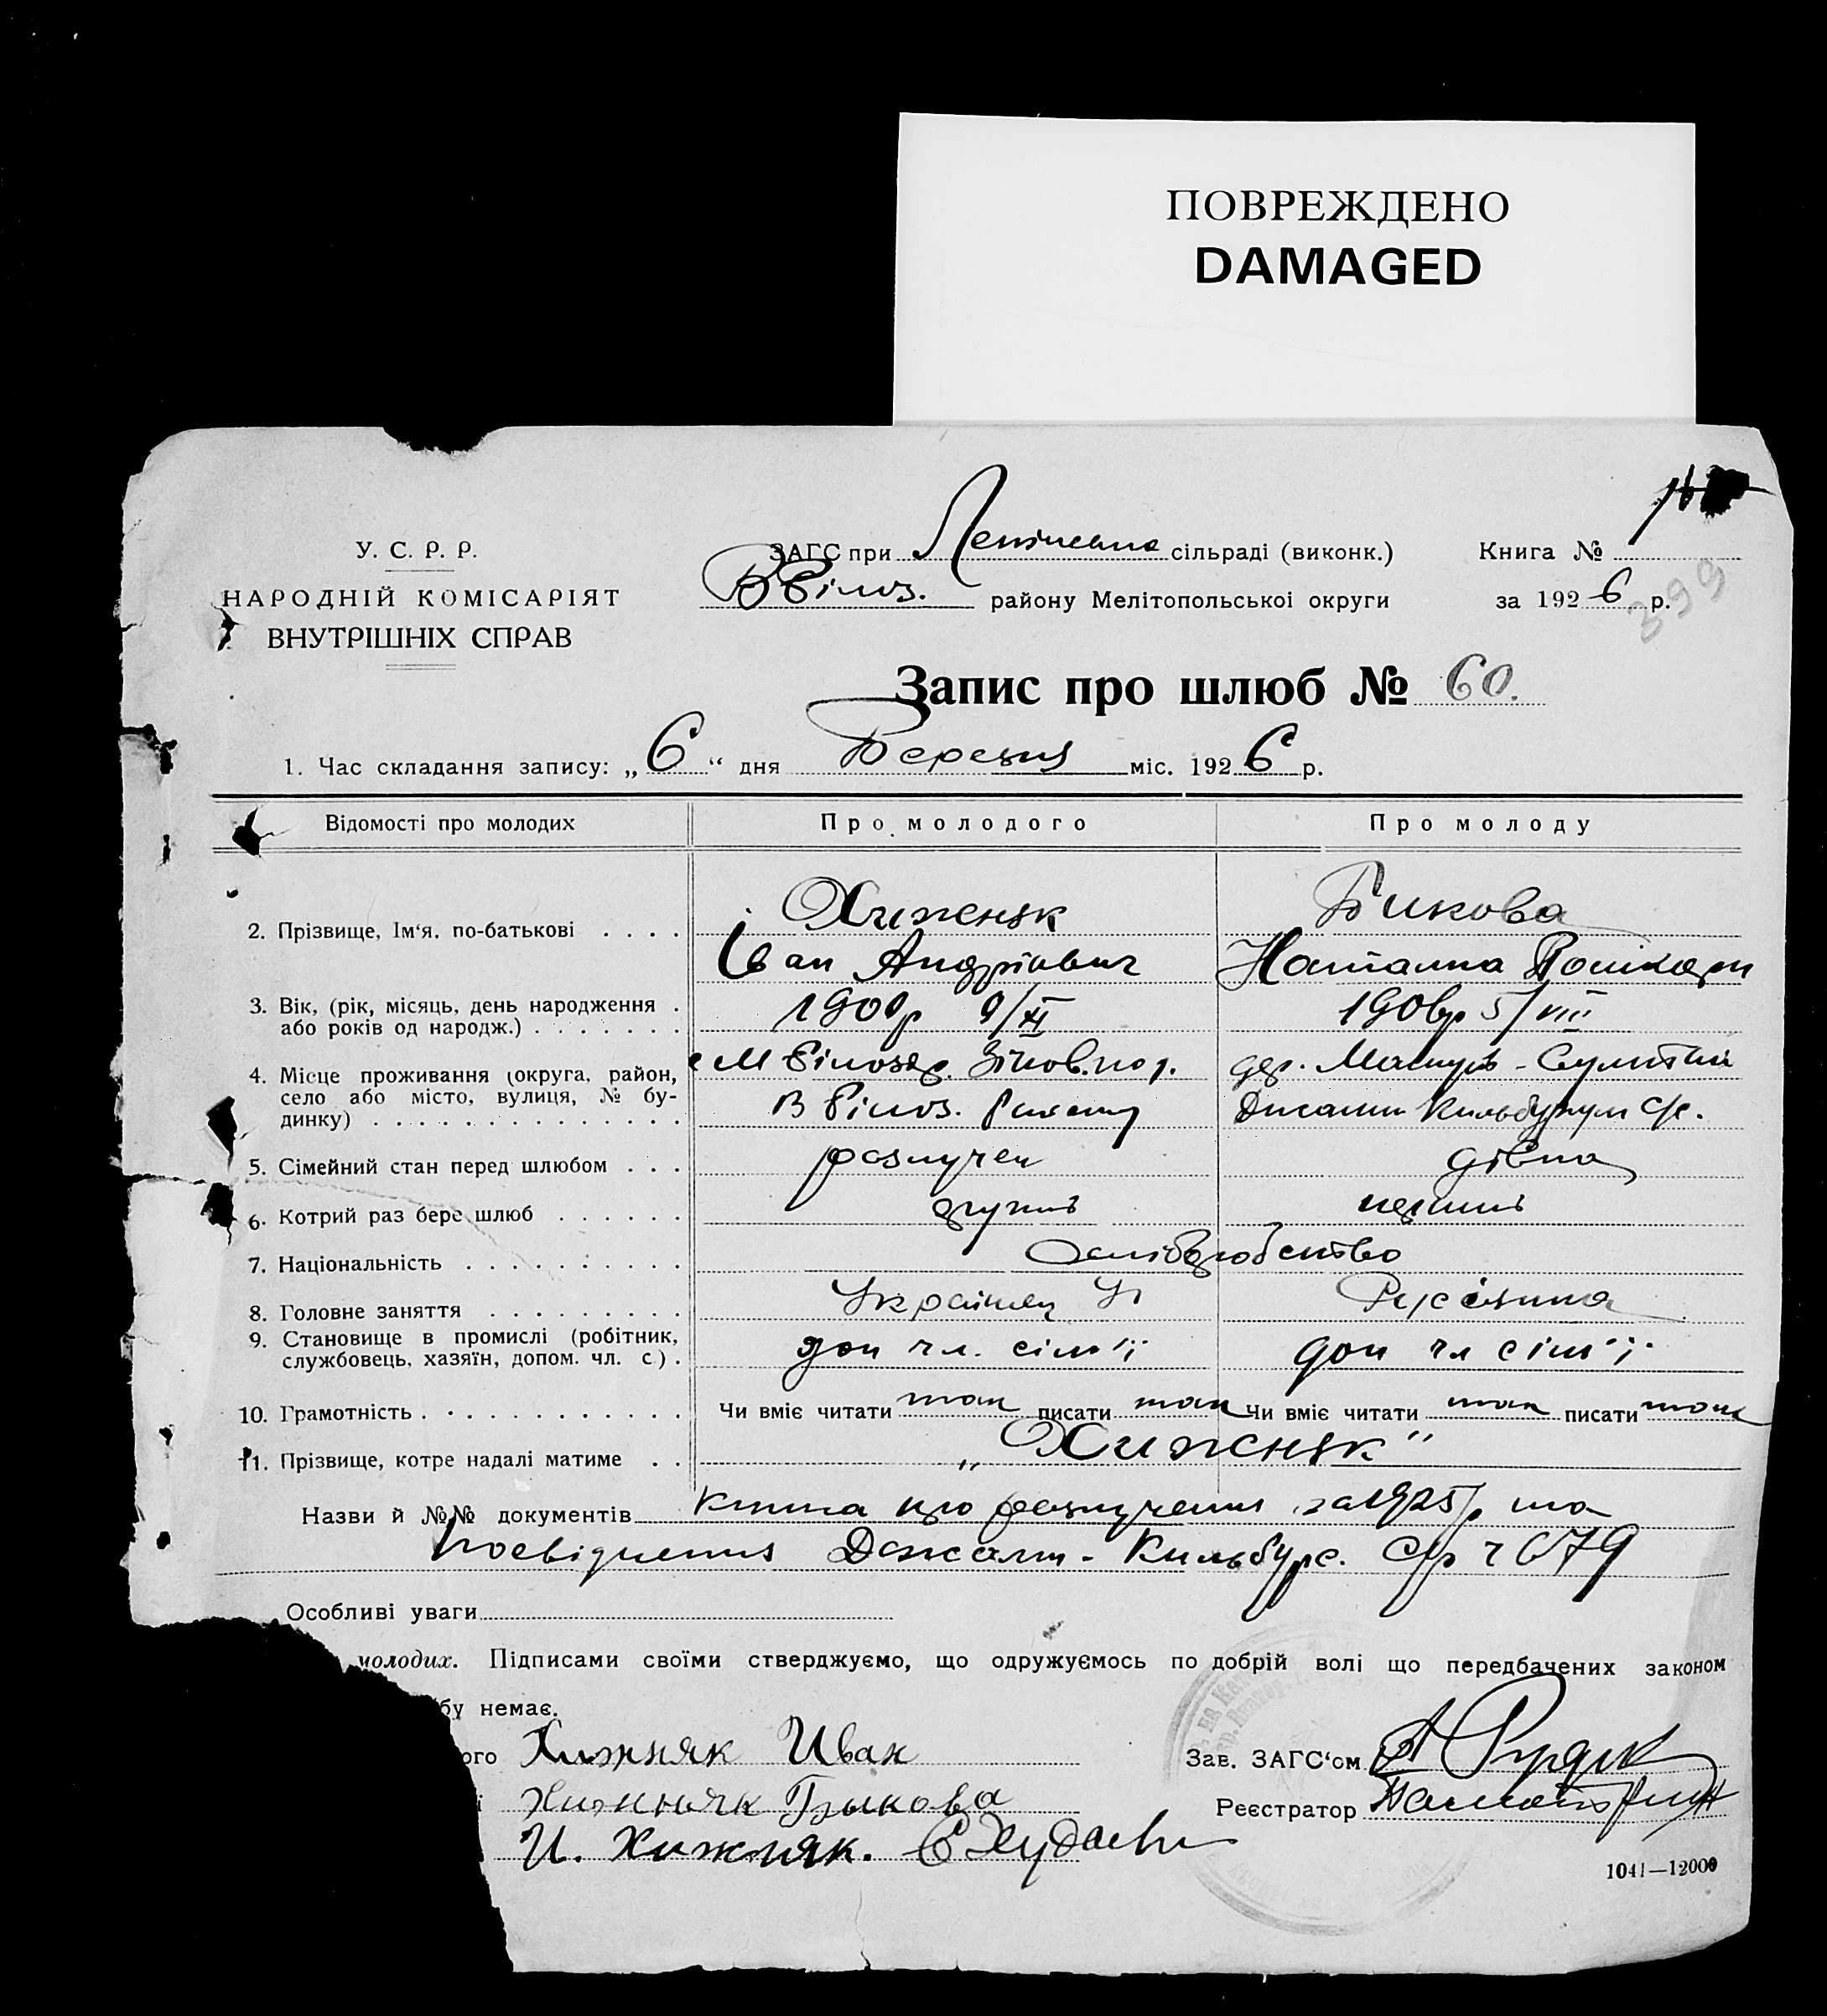 ПОВРЕЖДЕНО
DAMAGED
У. С. Р. Р.
НАРОДНІЙ КОМІСАРІЯТ
ВНУТРІШНІХ СПРАВ
ЗАГС при сільраді (виконк.)
Книга №
ВБілоз. району Мелітопольської округи
за 1926 р.
399
Запис про шлюб № 60.
1. Час складання запису: „6“ дня Березня міс. 1926 р.
Відомості про молодих Про молодого Про молоду
2. Прізвище, Ім'я, по-батькові . . . . Хиженяк Бикова
Іван Андріевич Наталка
3. Вік, (рік, місяць, день народження . або років од народж.) . . . . . . . 1900р 9/XI 1906р 5/VIII
4. Місце проживання (округа, район, село або місто, вулиця, № будинку) . . . . . . . . . . . . . .
В Білоз. Району
5. Сімейний стан перед шлюбом . . . розлучен дівка
6. Котрий раз бере шлюб . . . . . . другий перший
7. Національність . . . . . . . . . . хліборобство
8. Головне заняття . . . . . . . . .
9. Становище в промислі (робітник, службовець, хазяїн, допом. чл. с.) . доп чл. сім'ї доп чл сім'ї
10. Грамотність . . . . . . . . . . . . Чи вміє читати так писати так Чи вміє читати так писати так
11. Прізвище, котре надалі матиме . . „Хиженяк"
Назви й №№ документів книга про розлучення за 1925 р та
посвідчення Джалт-Кильбур. с/р ч 679
Особливі уваги
молодих. Підписами своїми стверджуємо, що одружуємось по добрій волі що передбачених законом
бу немає.
ого Хижняк Иван
Зав. ЗАГС'ом
і Хижняк Быкова
Реєстратор
И. Хижняк.
1041—12000